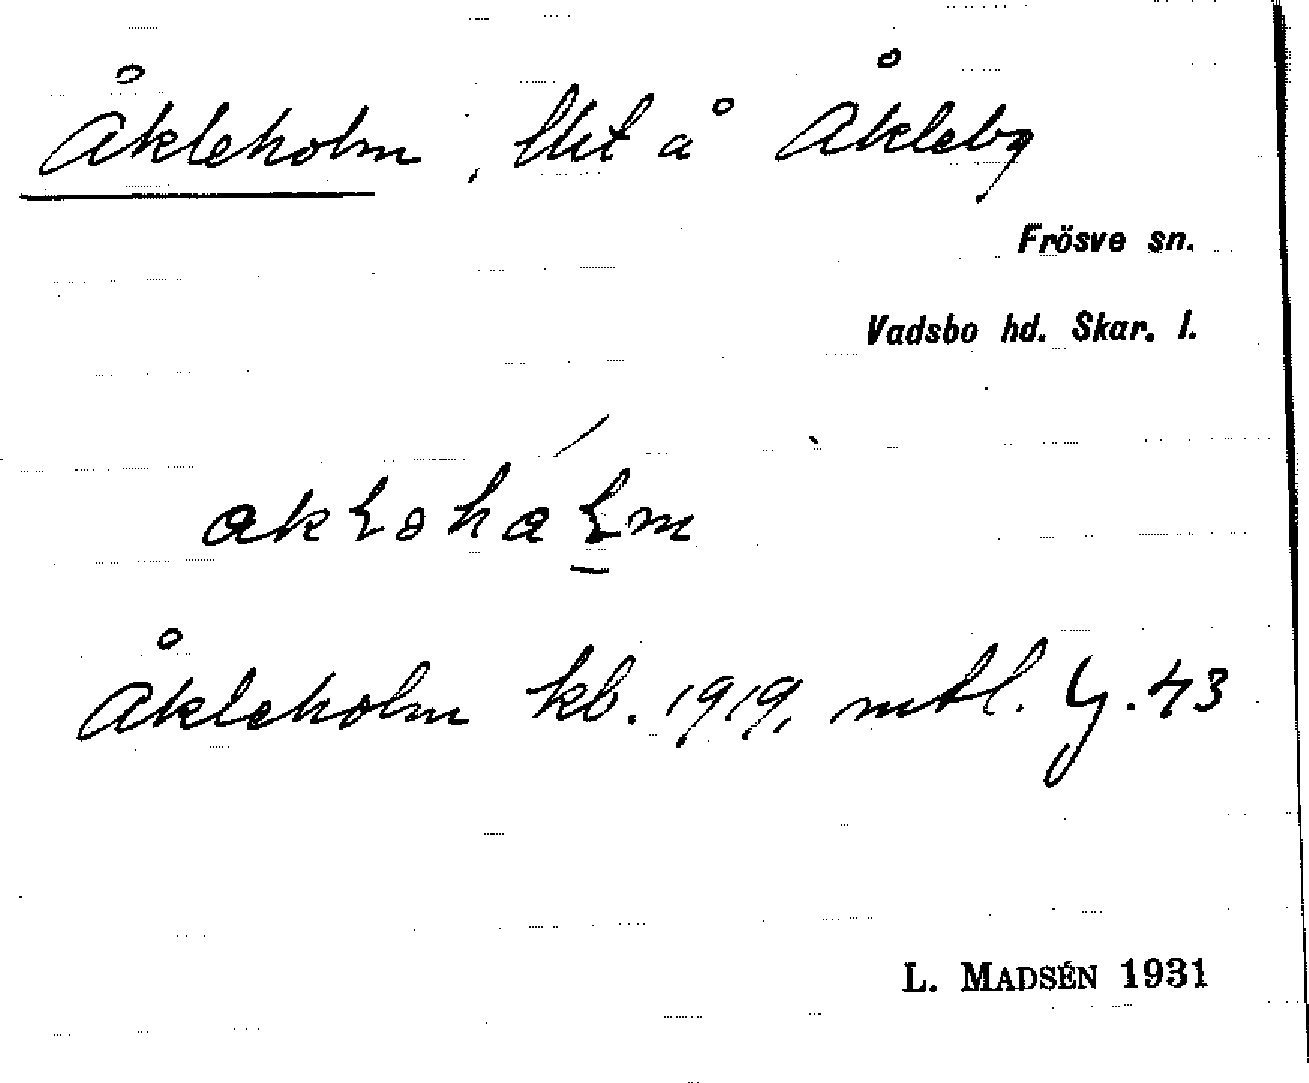 Åkleholm, lht å Åkleby
Frösve sn.
Vadsbo hd. Skar. l.
Åkleholm kb. 1919, mtl. Lj. 43
L. MADSÉN 1931